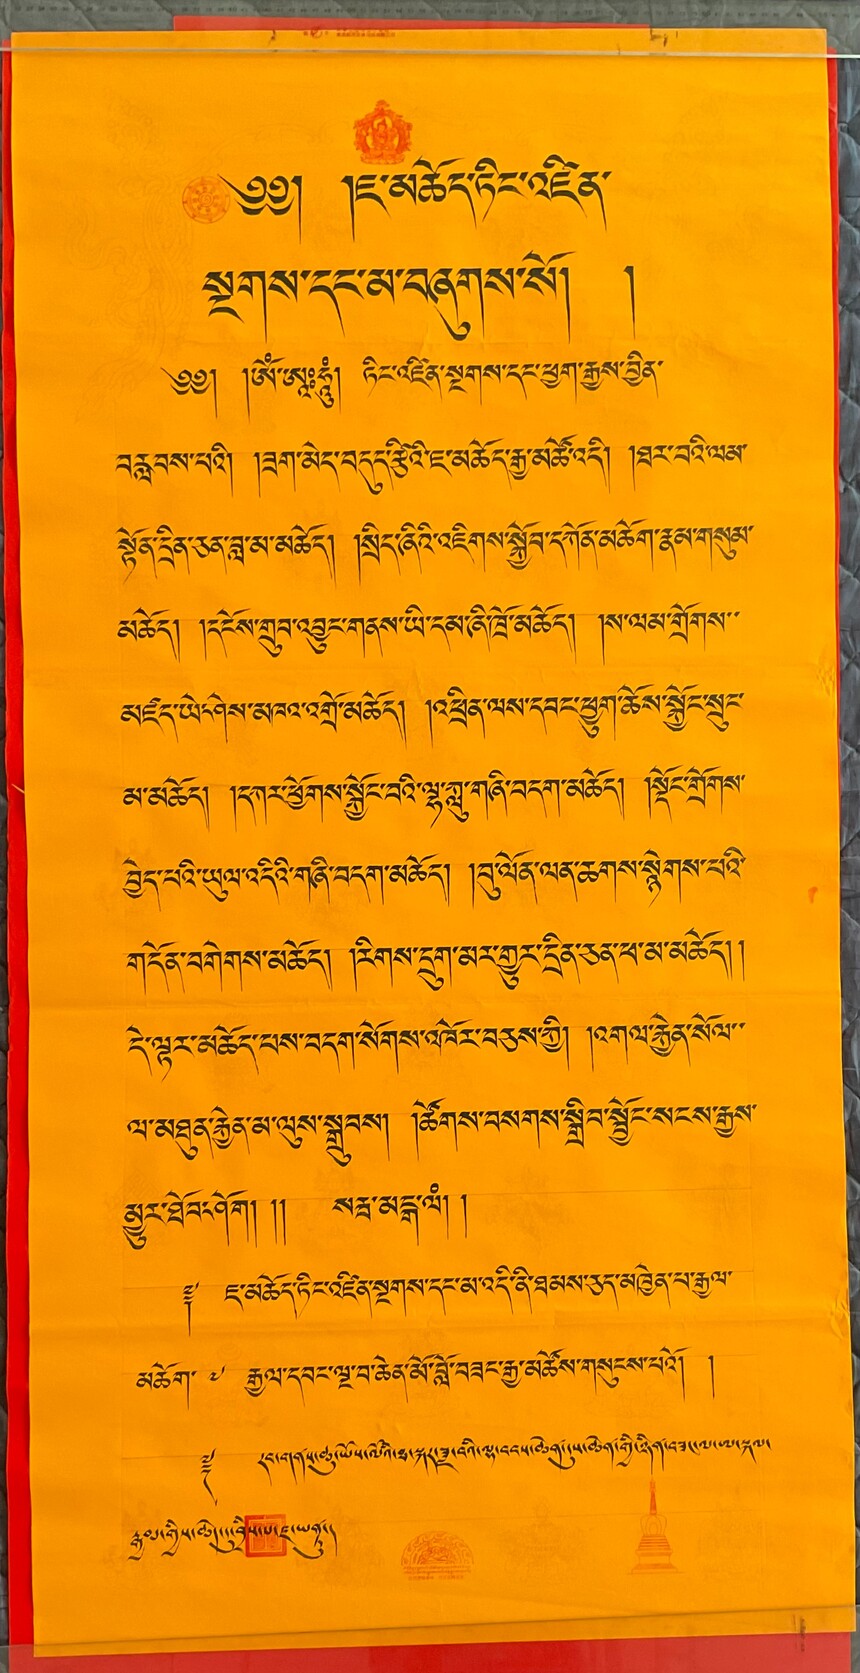 ༄༅། །ཇ་མཆོད་ཏིང་འཛིན་
སྔགས་དང་མ་བཞུགས་སོ། །
༄༅། །ཨོཾ་ཨཱཿཧཱུྃ། ཏིང་འཛིན་སྔགས་དང་ཕྱག་རྒྱས་བྱིན་
བརླབས་པའི། །ཟག་མེད་བདུད་རྩིའི་ཇ་མཆོད་རྒྱ་མཚོ་འདི། །ཐར་བའི་ལམ་
སྟོན་དྲིན་ཅན་བླ་མ་མཆོད། །སྲིད་ཞིའི་འཇིགས་སྐྱོབ་དཀོན་མཆོག་རྣམ་གསུམ་
མཆོད། །དངོས་གྲུབ་འབྱུང་གནས་ཡི་དམ་ཞི་ཁྲོ་མཆོད། །ས་ལམ་གྲོགས་
མཛད་ཡེ་ཤེས་མཁའ་འགྲོ་མཆོད། །འཕྲིན་ལས་དབང་ཕྱུག་ཆོས་སྐྱོང་སྲུང་
མ་མཆོད། །དཀར་ཕྱོགས་སྐྱོང་བའི་ལྷ་ཀླུ་གཞི་བདག་མཆོད། །སྡོང་གྲོགས་
བྱེད་པའི་ཡུལ་འདིའི་གཞི་བདག་མཆོད། །བུ་ལོན་ལན་ཆགས་སྙེགས་པའི་
གདོན་བགེགས་མཆོད། །རིགས་དྲུག་མར་གྱུར་དྲིན་ཅན་ཕ་མ་མཆོད། །
དེ་ལྟར་མཆོད་པས་བདག་སོགས་འཁོར་བཅས་ཀྱི། །འགལ་རྐྱེན་སོལ་
ལ་མཐུན་རྐྱེན་མ་ལུས་སྒྲུབས། །ཚོགས་བསགས་སྒྲིབ་སྦྱོང་སངས་རྒྱས་
མྱུར་ཐོབ་ཤོག །། སརྦ་མངྒ་ལཾ། །
ཇ་མཆོད་ཏིང་འཛིན་སྔགས་དང་མ་འདི་ནི་ཐམས་ཅད་མཁྱེན་པ་རྒྱལ་
མཆོག་ ༧ རྒྱལ་དབང་ལྔ་བ་ཆེན་མོ་བློ་བཟང་རྒྱ་མཚོས་གསུངས་པའོ། །